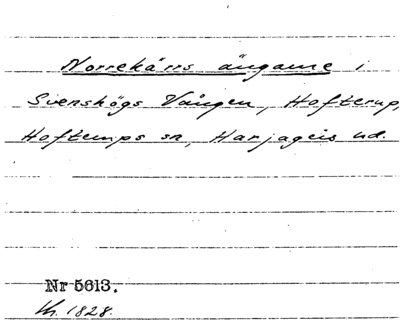 Norrekärrs ängarne i
Svenskögs Vången, Hofterup,
Hofterups sn, Harjagers hd.
Nr 5613.
th. 1828.